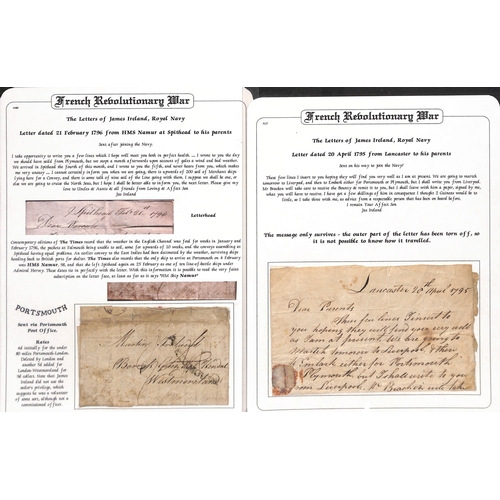 French Revolutionary War
The Letters of James Ireland, Royal Navy
Letter dated 21 February 1796 from HMS Namur at Spithead to his parents
Sent after joining the Navy.
I take opportunity to write you a few lines which I hope will meet you both in perfect health. ... I wrote to you the day
we should have sail'd from Plymouth, but we stopt a month afterwards upon account of gales a wind and bad weather.
We arrived in Spithead the fourth of this month, and I wrote to you the fifth, and never hears from you, which makes
me very uneasy ... I cannot certainly in form you when we are going, there is upwards of 200 sail of Merchant ships
lying here for a Convoy, and there is some nine sail of the Line going with them. I suppose we shall be one, or
else we are going to cruize the North Seas, but I hope I shall be better able to inform you, the next Letter. Please give my
love to Uncles & Aunts & all friends from Loving & Affect Son
Jas Ireland
Spithead Feb 21st 1796
Dear Parents
Letterhead
Contemporary editions of The Times noted that the weather in the English Channel was foul for weeks in January and
February 1796, the packets at Falmouth being unable to sail, some for upwards of 10 weeks, and the convoys assembling at
Spithead having equal problems. An earlier convoy to the East Indies had been decimated by the weather, surviving ships
heading back to British ports for shelter. The Times also records that the only ship to arrive at Portsmouth on 4 February
was HMS Namur, 98, and that she left again on 25 February as one of ten line-of-battle ships under
Admiral Hervey. These dates tie in perfectly with the letter. With this information it is possible to read the very faint
subscription on the letter face, at least as far as it says "HM Ship Namur"
PORTSMOUTH
Sent via Portsmouth
Post Office.
Rates
4d initially for the under
80 miles Portsmouth-London.
Deleted by London and
another 5d added for
London-Westmoreland for
9d collect. Note that James
Ireland did not use the
sailors privilege, which
suggests he was a volunteer
of some sort, although not a
commissioned officer.
Westmoreland
French Revolutionary War
The Letters of James Ireland, Royal Navy
Letter dated 20 April 1795 from Lancaster to his parents
Sent on his way to join the Navy?
These few lines I insert to you hoping they will find you very well as I am at present. We are going to March
tomorrow to Liverpool, and then to Embark either for Portsmouth or Plymouth, but I shall write you from Liverpool.
Mr Bracken will take sent to receive the Bounty & remit it to you, but I shall leave with him a paper, signed by me,
what you will receive, but I have got a few shillings of him in consequence I thought 2 Guineas would be to
little, as I take three with me, as advice from a responsible person that has been on board before.
I remain Your Aff'ect Son
Jas Ireland
The message only survives - the outer part of the letter has been torn off, so
it is not possible to know how it travelled.
Lancaster 20th April 1795
Dear Parents
These few lines I insert to
you hoping they will find you very well
as I am at present. We are going to
March tomorrow to Liverpool & then
to Embark either for Portsmouth
Plymouth but I shall write to you
from Liverpool. Mr Bracken